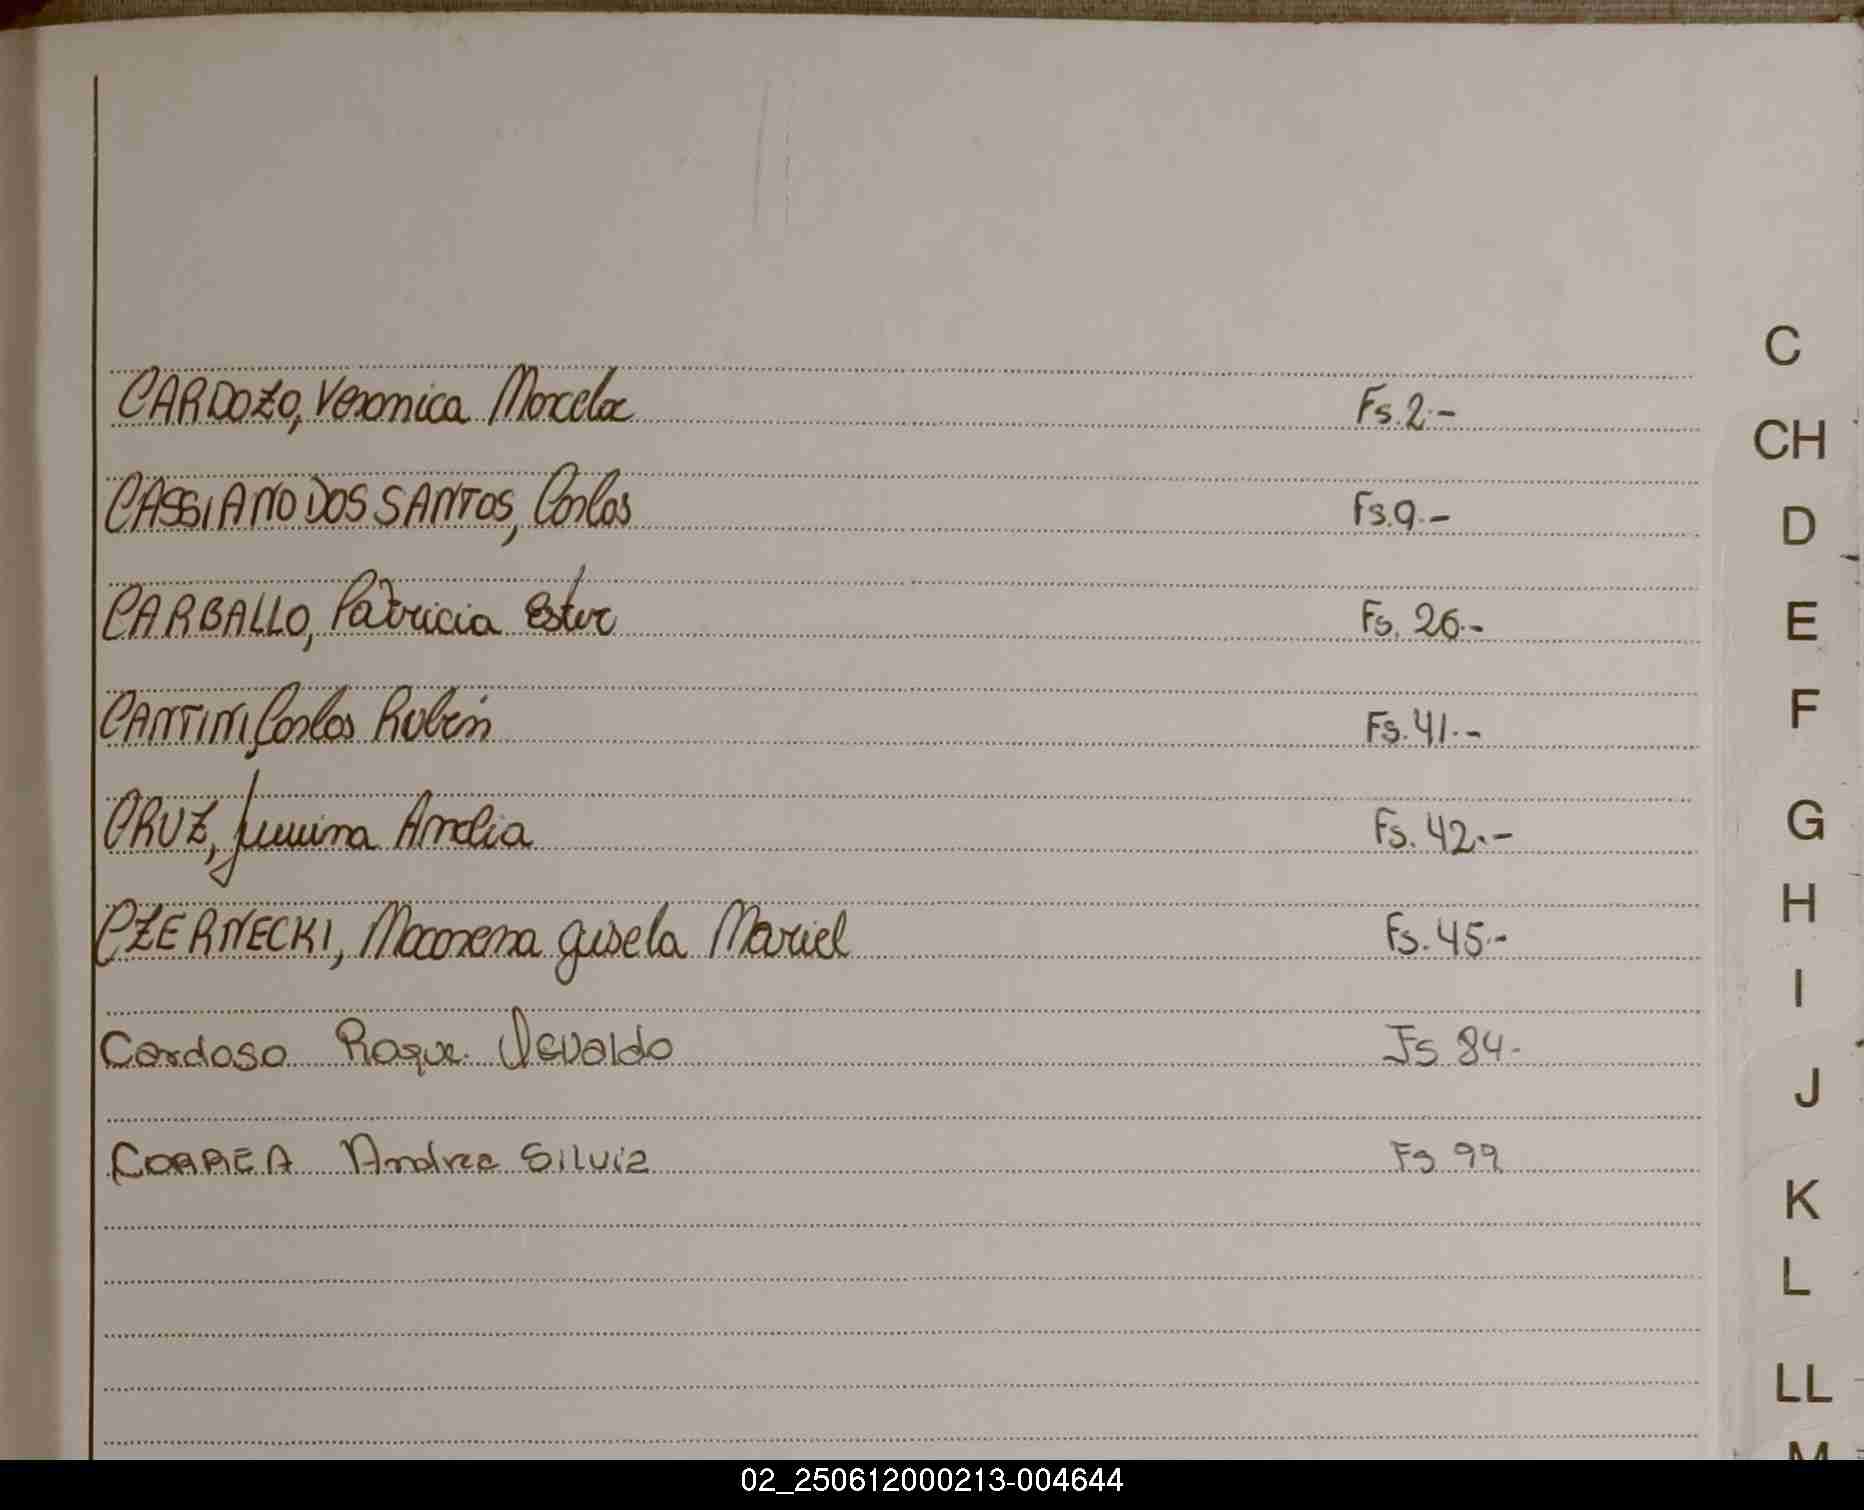 CARDOZO, Veronica Marcela Fs. 2.-
CASSIANO DOS SANTOS, Carlos Fs. 9.-
CARBALLO, Patricia Ester Fs. 26.-
CANTINI, Carlos Rubén Fs. 41.-
CRUZ, Jimina Analia Fs. 42.-
CZERNECKI, Macarena Gisela Mariel Fs. 45.-
Cardoso Roque Osvaldo Fs 84-
CORREA Andrea Silvia Fs 99
C
CH
D
E
F
G
H
I
J
K
L
LL
M
02_250612000213-004644